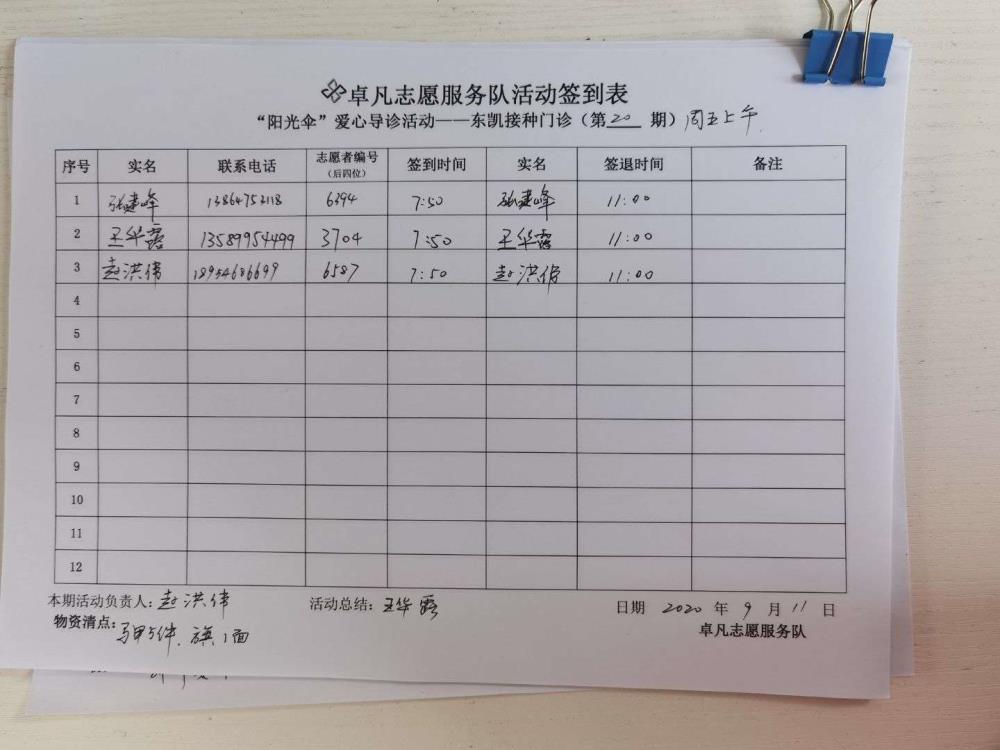 卓凡志愿服务队活动签到表
“阳光伞”爱心导诊活动——东凯接种门诊（第20期）周五上午
序号 实名 联系电话 志愿者编号（后四位） 签到时间 实名 签退时间 备注
1 张建峰 13864753118 6394 7:50 张建峰 11:00
2 王华露 13589954499 3704 7:50 王华露 11:00
3 赵洪伟 18954686699 6587 7:50 赵洪伟 11:00
4
5
6
7
8
9
10
11
12
本期活动负责人：赵洪伟 活动总结：王华露 日期 2020 年 9 月 11 日
物资清点：马甲5件、旗1面 卓凡志愿服务队